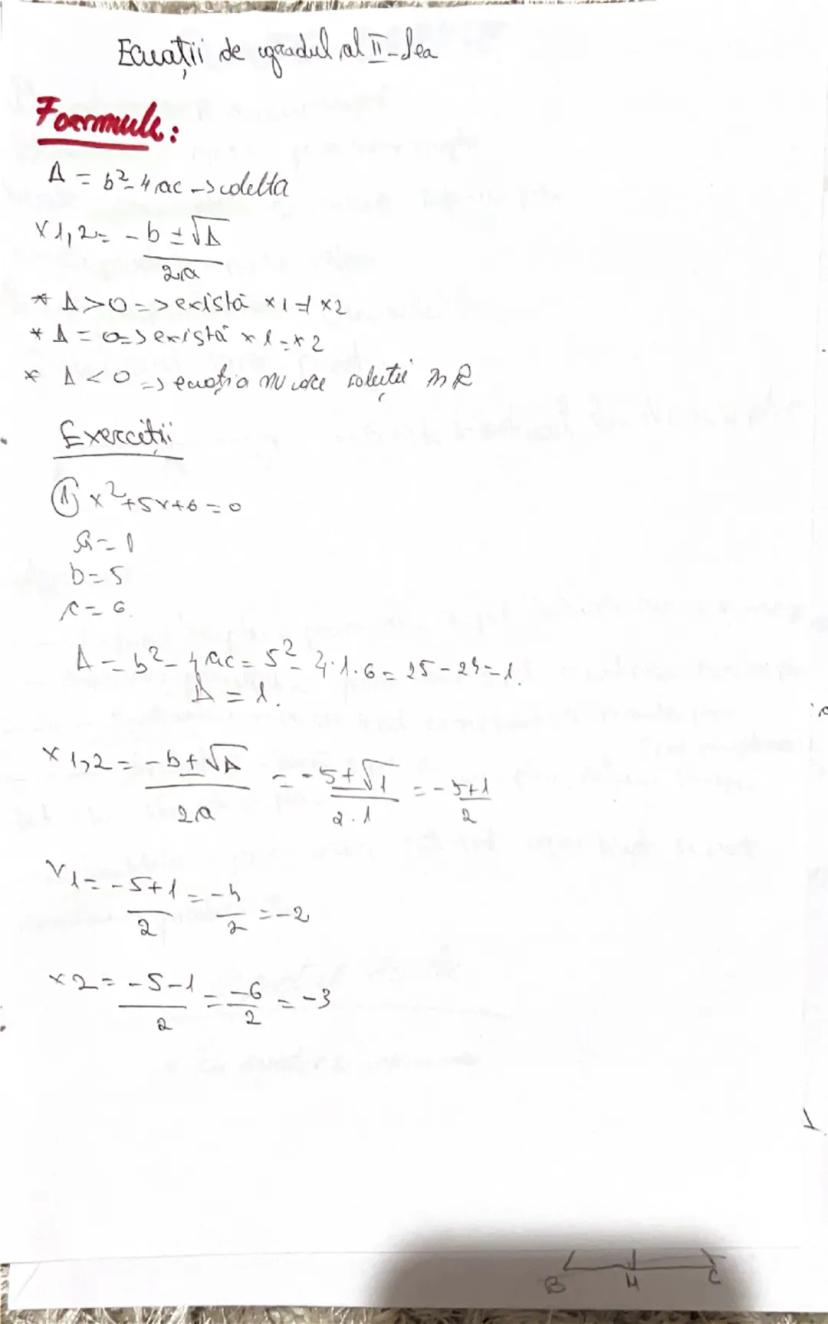 Ecuații de gradul al II-lea
Formule:
Δ = b²-4ac -> delta
x1,2= -b ± √Δ
2a
* Δ>0 => există x1 ≠ x2
* Δ = 0 => există x1 = x2
* Δ < 0 => ecuația nu are soluții în R
Exerciții
① x²+5x+6=0
a=1
b=5
c=6
Δ = b² - 4ac = 5² - 4·1·6 = 25-24=1.
Δ = 1.
x1,2 = -b±√Δ = -5±√1 = -5±1
2a 2·1 2
x1= -5+1 = -4 = -2
2 2
x2= -5-1 = -6 = -3
2 2
B M C